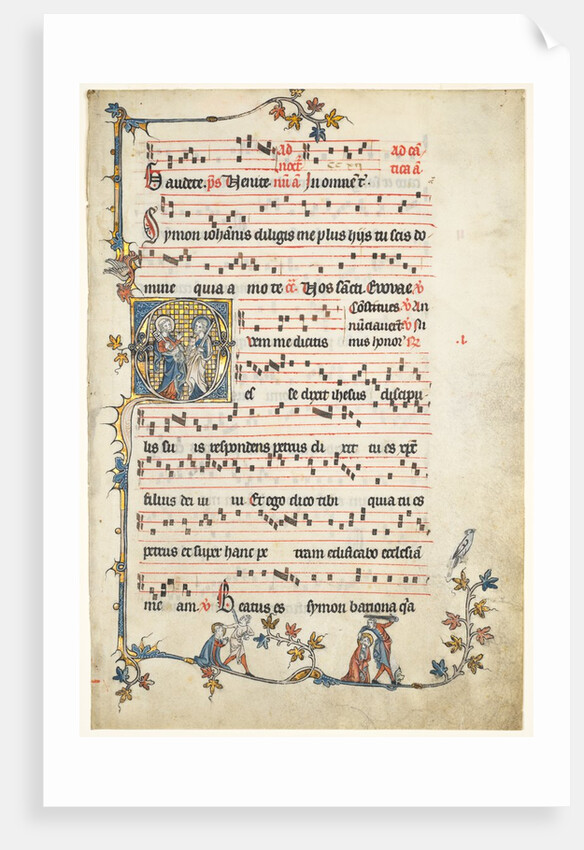 ad cã
noct̃ cc xij tica ã.
Gaudete. p̃s Venite. nũ ã In omnẽ t̃.
Symon iohãnis diligis me plus hijs tu scis do
mine quia a mo te c̃. Vos sãcti. Evovae. ℣
Cõstitues. ℣ An
nũciaverũt ℣ Ni
Quem me dicũt mis honor̃ ℟ .l.
es se dixit ihesus discipu
lis su is respondens petrus di xit tu es xp̃c
filius dei ui ui. Et ego dico tibi quia tu es
petrus et super hanc pe tram edificabo ecclesiã
me am. ℣ Beatus es symon bariona q̃a